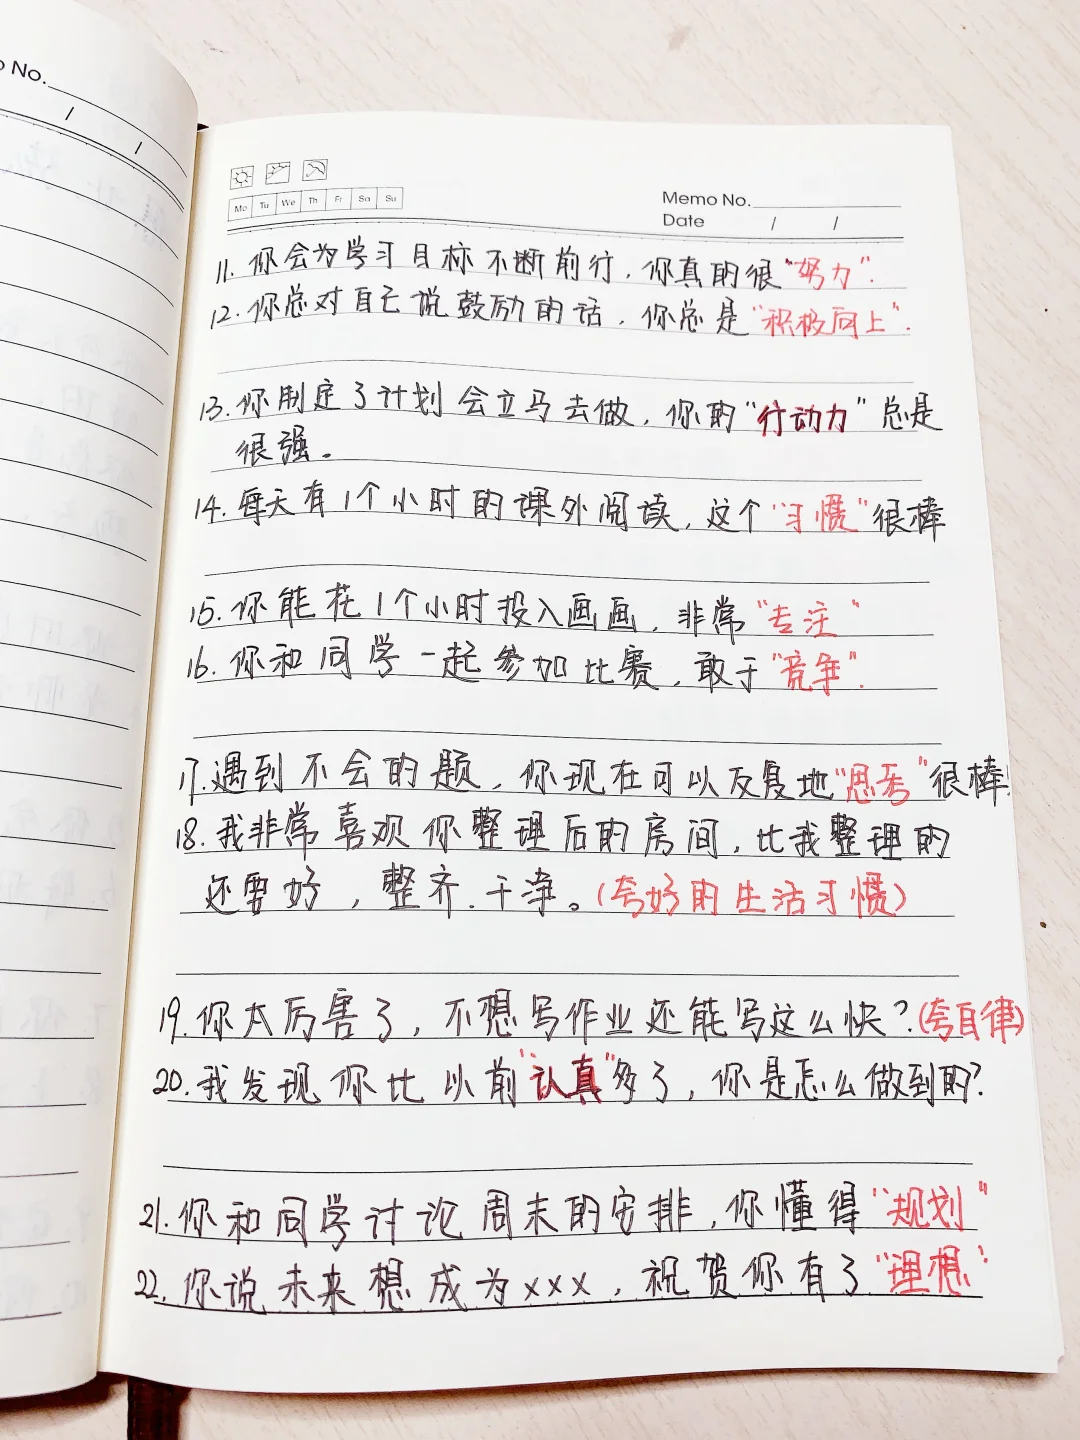 o No.
/ /
Mo Tu We Th Fr Sa Su
Memo No.
Date / /
11. 你会为学习目标不断前行，你真的很"努力".
12. 你总对自己说鼓励的话，你总是"积极向上".
13. 你制定了计划会立马去做，你的"行动力"总是
很强。
14. 每天有1个小时的课外阅读，这个"习惯"很棒
15. 你能花1个小时投入画画，非常"专注"
16. 你和同学一起参加比赛，敢于"竞争".
17. 遇到不会的题，你现在可以反复地"思考"很棒!
18. 我非常喜欢你整理后的房间，比我整理的
还要好，整齐.干净。(夸好的生活习惯)
19. 你太厉害了，不想写作业还能写这么快？(夸自律)
20. 我发现你比以前"认真"多了，你是怎么做到的?
21. 你和同学讨论周末的安排，你懂得"规划"
22. 你说未来想成为xxx，祝贺你有了"理想"